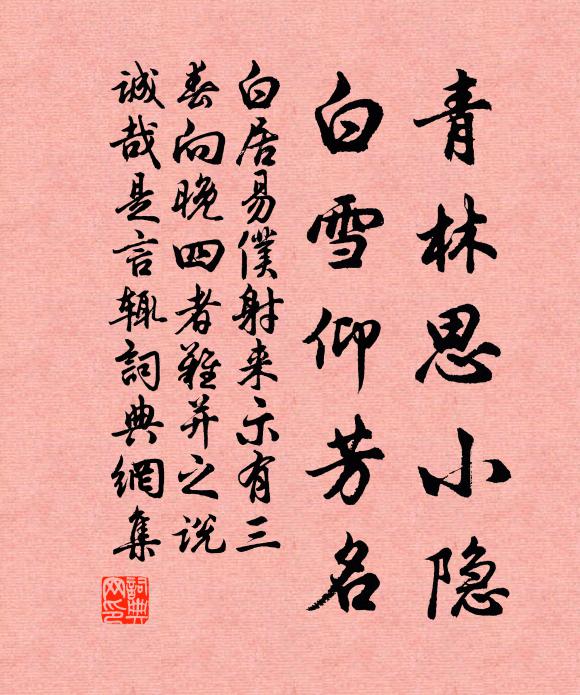 青林思小隐
白雪仰芳名
白居易僕射来示有三
春向晚四者难并之说
诚哉是言辄詞典網集
詞典网印